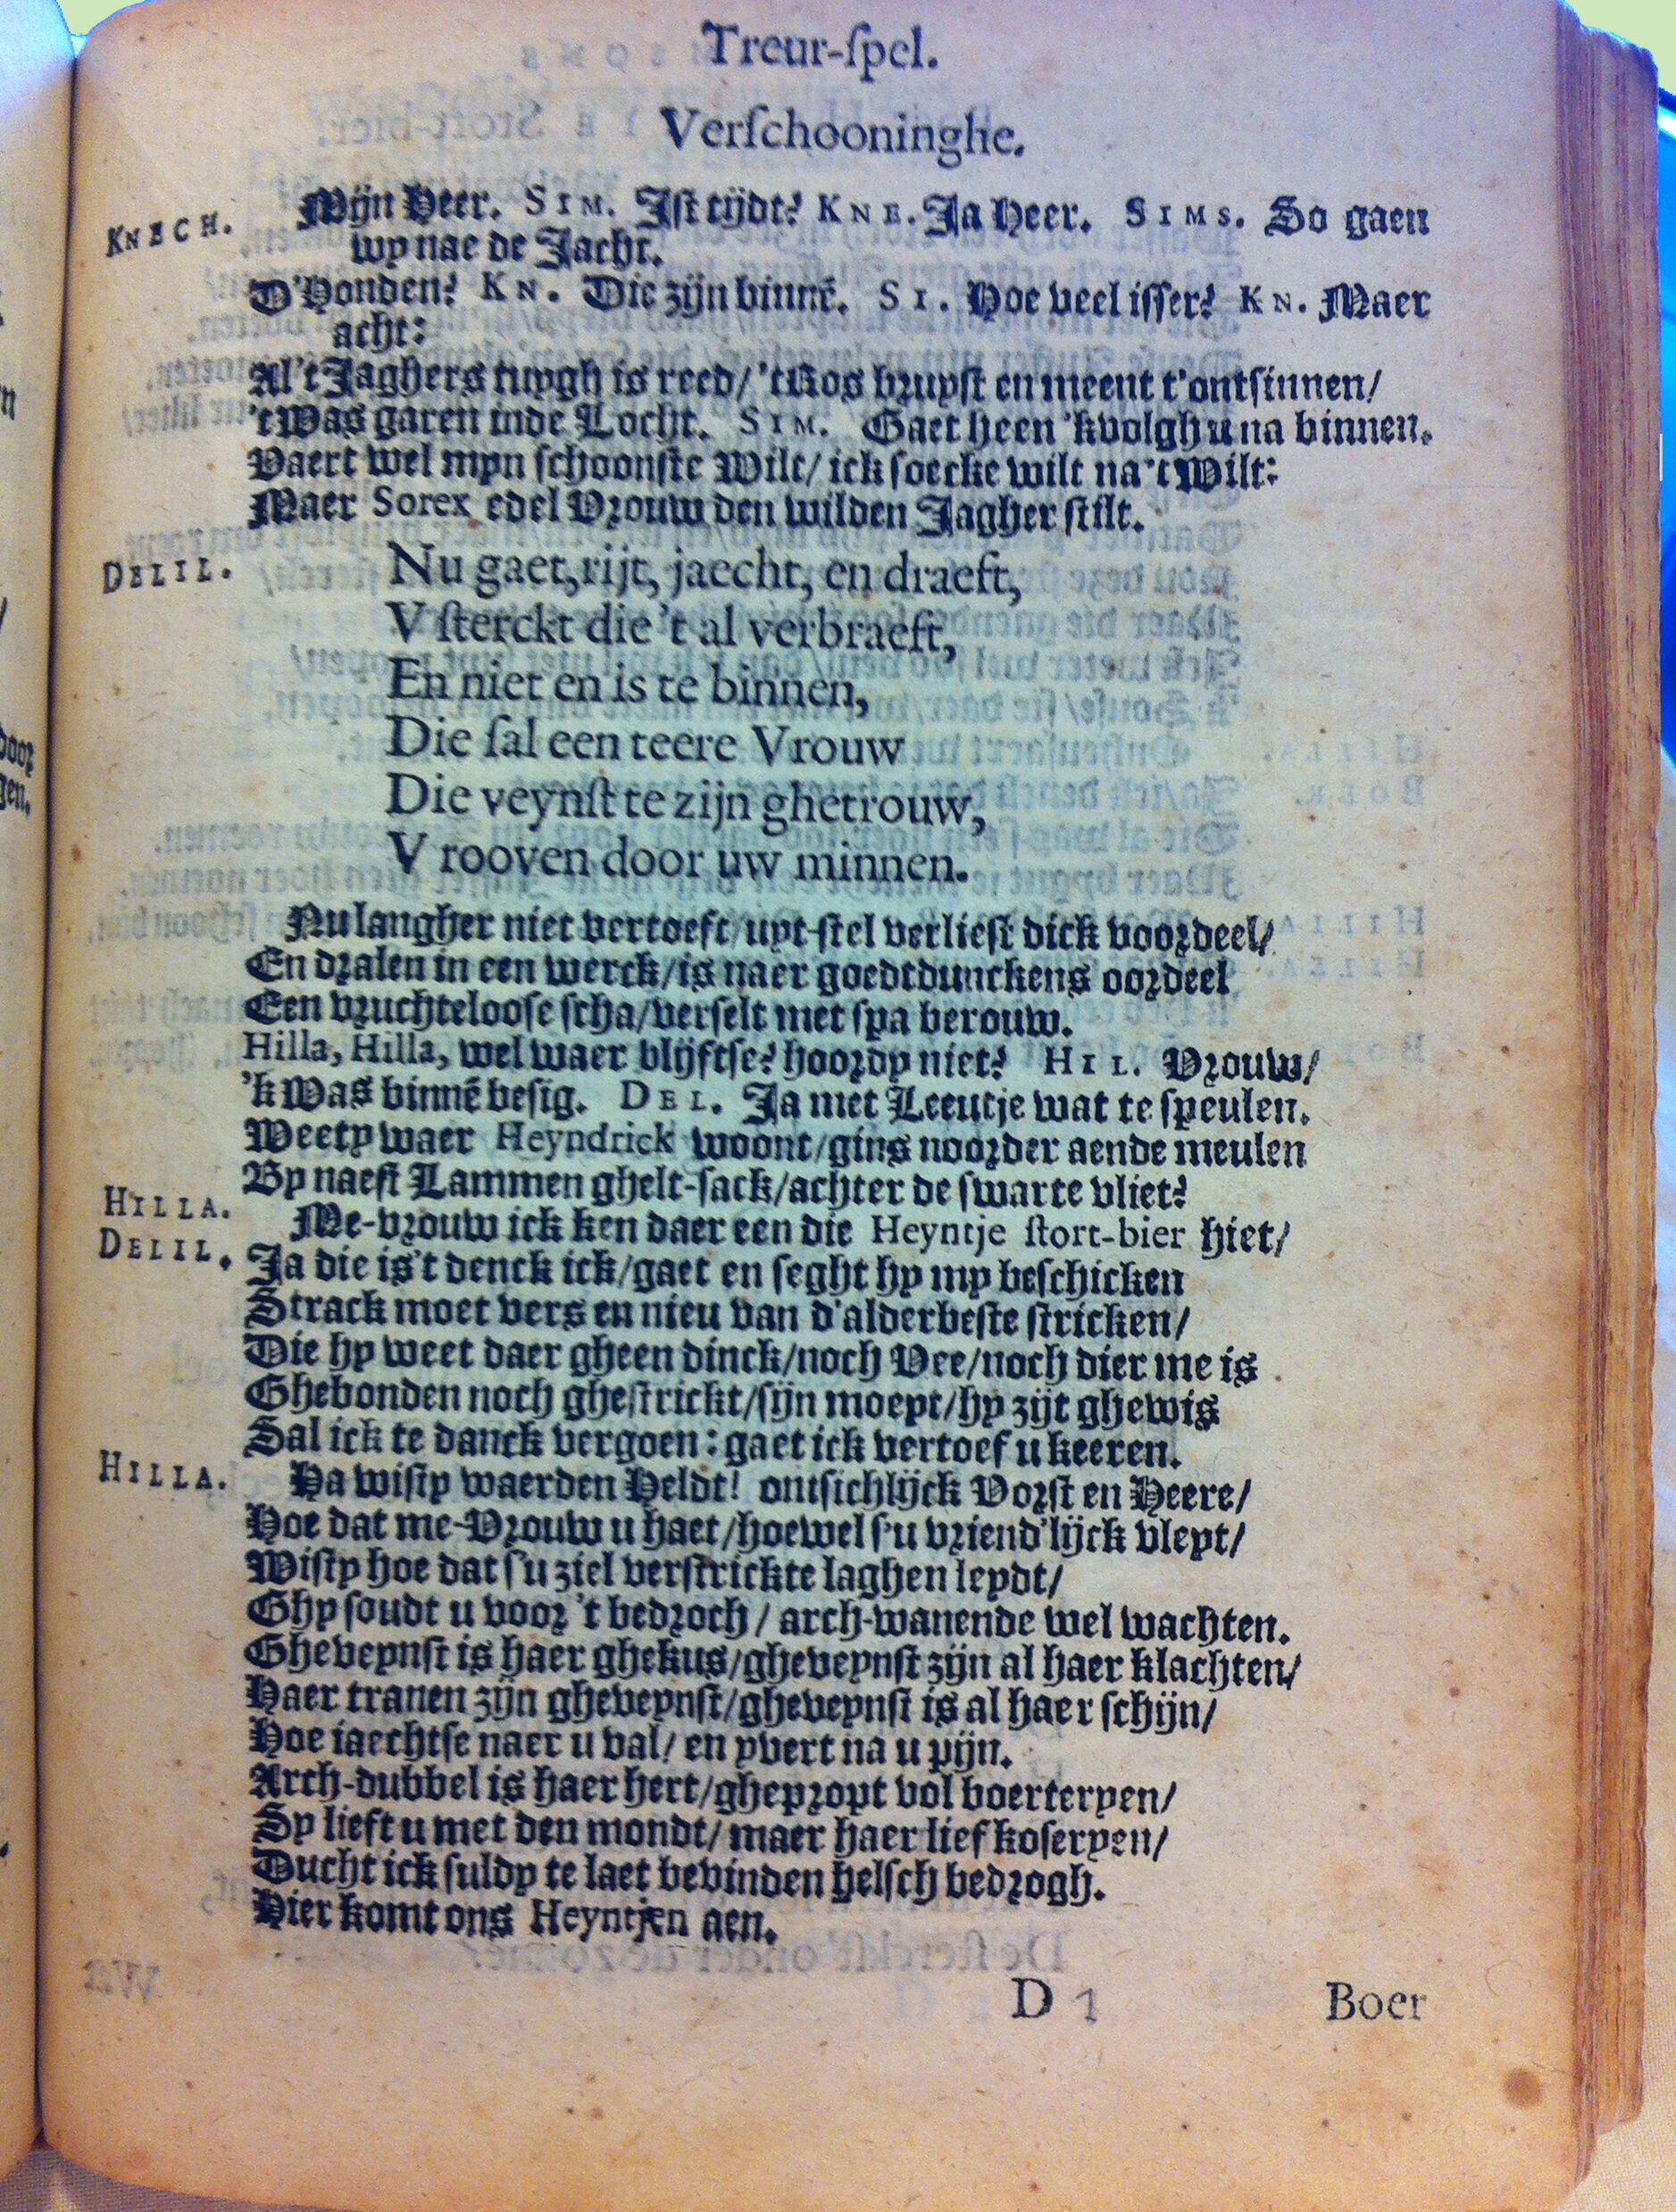 Treur-ſpel.
Verſchooninghe.
KNECH. Mijn Heer. SIM. Iſt tijdt? KNE. Ja Heer. SIMS. So gaen
wy nae de Jacht.
D'Honden? KN. Die zijn binnē. SI. Hoe veel iſſer? KN. Maer
acht:
Al 't Jaghers tuygh is reed/ 't Ros bruyſt en meent t'ontſinnen/
't Was garen inde Locht. SIM. Gaet heen 'k volgh u na binnen.
Vaert wel myn ſchoonſte Wilt/ ick ſoecke wilt na 't Wilt:
Maer Sorex edel Vrouw den wilden Jagher ſtilt.
DELIL. Nu gaet, rijt, jaecht, en draeft,
V ſterckt die 't al verbraeft,
En niet en is te binnen,
Die ſal een teere Vrouw
Die veynſt te zijn ghetrouw,
V rooven door uw minnen.
Nu langher niet vertoeft/ uyt-ſtel verlieſt dick voordeel/
En dralen in een werck/ is naer goedtdunckens oordeel
Een vruchteloose ſcha/ verſelt met ſpa berouw.
Hilla, Hilla, wel waer blijftſe? hoordy niet? HIL. Vrouw/
'k Was binnē beſig. DEL. Ja met Leeutje wat te ſpeulen.
Weety waer Heyndrick woont/ gins noorder aende meulen
By naeſt Lammen ghelt-ſack/ achter de ſwarte vliet?
HILLA. Me-vrouw ick ken daer een die Heyntje ſtort-bier hiet/
DELIL. Ja die is 't denck ick/ gaet en ſeght hy my beſchicken
Strack moet vers en nieu van d'alderbeſte ſtricken/
Die hy weet daer gheen dinck/ noch Vee/ noch dier me is
Ghebonden noch gheſtrickt/ ſijn moeyt/ hy zijt ghewis
Sal ick te danck vergoen: gaet ick vertoef u keeren.
HILLA. Ha wiſty waerden Heldt! ontſichlijck Vorſt en Heere/
Hoe dat me-Vrouw u haet/ hoewel ſ'u vriend'lijck vleyt/
Wiſty hoe dat ſ'u ziel verſtrickte laghen leydt/
Ghy ſoudt u voor 't bedroch/ arch-wanende wel wachten.
Gheveynſt is haer ghekus/ gheveynſt zijn al haer klachten/
Haer tranen zijn gheveynſt/ gheveynſt is al haer ſchijn/
Hoe iaechtſe naer u val/ en yvert na u pijn.
Arch-dubbel is haer hert/ ghepropt vol boerteryen/
Sy lieft u met den mondt/ maer haer lief koſeryen/
Ducht ick ſuldy te laet bevinden helſch bedrogh.
Hier komt ons Heyntjen aen.
D 1 Boer